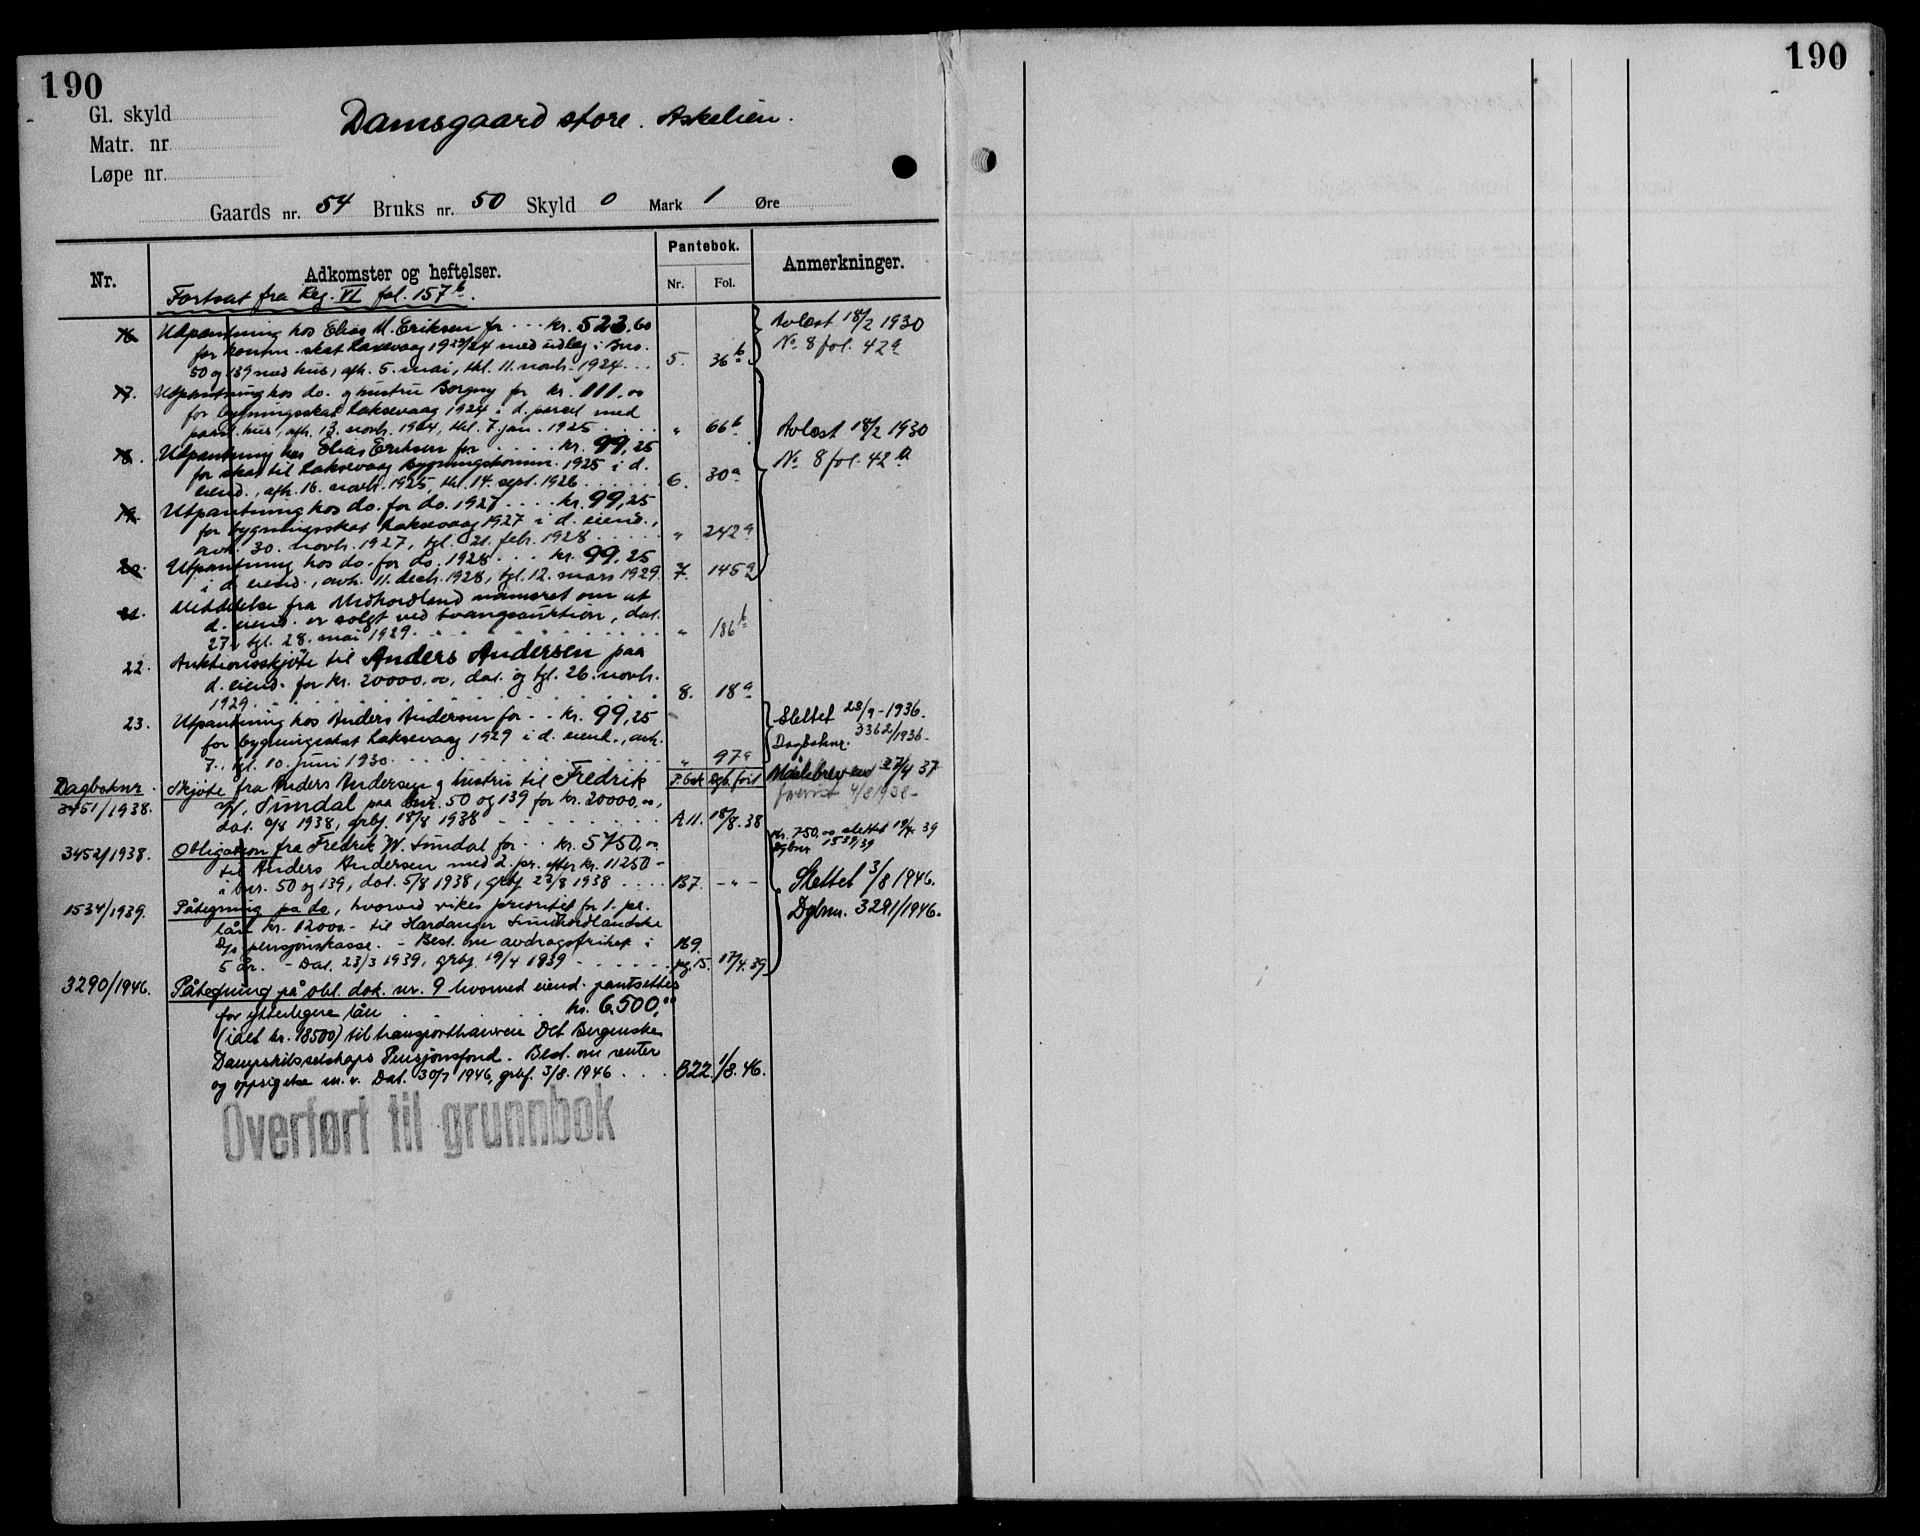 190
190
Gl. skyld
Damsgaard store. Askelien.
Matr. nr
Løpe nr.
Gaards nr. 54 Bruks nr. 50 Skyld 0 Mark 1 Øre
Nr.
Adkomster og heftelser.
Pantebok.
Nr. Fol.
Anmerkninger.
Fortsat fra Reg. VI fol. 157 b.
16. Utpantning hos Elias M. Eriksen for ... kr. 523.60
for komm. skat Laksevaag 1923/24 med utlæg i Bno.
50 og 139 med hus, afh. 5. mai, thl. 11. novbr. 1924 ... 5. 36 b
Avlæst 18/2 1930
No 8 fol. 42 a
17. Utpantning hos do. og hustru Borgny for kr. 111.00
for bygningsskat Laksevaag 1924 i d. parcel med
paast. hus, afh. 13. novbr. 1924, thl. 7. jan. 1925 ... " 66 b
Avlæst 18/2 1930
No 8 fol. 42 a
18. Utpantning hos Elias Eriksen for ..... kr. 99,25
for skat til Laksevaag Bygningskomm. 1925 i d.
eiend., afh. 16. novbr. 1925, thl. 14. sept. 1926 ...... 6. 30 a
19. Utpantning hos do. for do. 1927 .... kr. 99,25
for bygningsskat Laksevaag 1927 i d. eiend.,
avh. 30. novbr. 1927, tgl. 21. febr. 1928 ..... " 242 a
20. Utpantning hos do. for do. 1928 ... kr. 99,25
i d. eiend., avh. 11. decbr. 1928, tgl. 12. mars 1929. 7. 145 a
21. Meddelelse fra Midhordland om at
d. eiend. er solgt ved tvangsauktion, dat.
27., tgl. 28. mai 1929. " 186 b
22. Auktionsskjøte til Anders Andersen paa
d. eiend. for kr. 20000.00, dat. og tgl. 26. novbr.
1929. 8. 18 a
23. Utpantning hos Anders Andersen for .. kr. 99,25
for bygningsskat Laksevaag 1929 i d. eiend., avh.
7., tgl. 10. juni 1930 " 97 a
Slettet 28/9 - 1936.
Dagboknr. 3362/1936 -
Dagboknr.
3451/1938.
Skjøte fra Anders Andersen og hustru til Fredrik
W. Sundal paa bnr. 50 og 139 for kr. 20000.00,
dat. 4/8 1938, grbf. 18/8 1938
P.bok Dgb.ført
A 11. 18/8. 38
Målebrev av 27/4 37
4/8 1938 -
3452/1938. Obligasjon fra Fredrik W. Sundal for .. kr. 5750,00
til Anders Andersen med 2. pr. efter kr. 11250 -
i bnr. 50 og 139, dat. 5/8 1938, grbf. 23/8 1938 .... B7. - " -
kr. 750,00 slettet 19/4 39
Dgbnr. 1534/39
Slettet 3/8 1946.
Dgbnr. 3291/1946.
1534/1939. Påtegning på do, hvorved vikes prioritet for 1. pr.
lån kr. 12000.- til Hardanger Sunnhordlandske
D/s pensjonskasse. - Best. om avdragsfrihet i
5 år. - Dat. 23/3 1939, grbf. 19/4 1939 B9. pg. 15. 17/4. 39
3290/1946. Påtegning på obl. dok. nr. 9 hvorved eiend. pantsettes
for ytterligere lån kr. 6.500,00
(ialt kr. 18500) til transporthaveren Det Bergenske
Dampskibsselskaps Pensjonsfond. Best. om renter
og oppsigelse m.v. Dat. 30/7 1946, grbf. 3/8. 1946 .... B22. 1/8. 46.
Overført til grunnbok